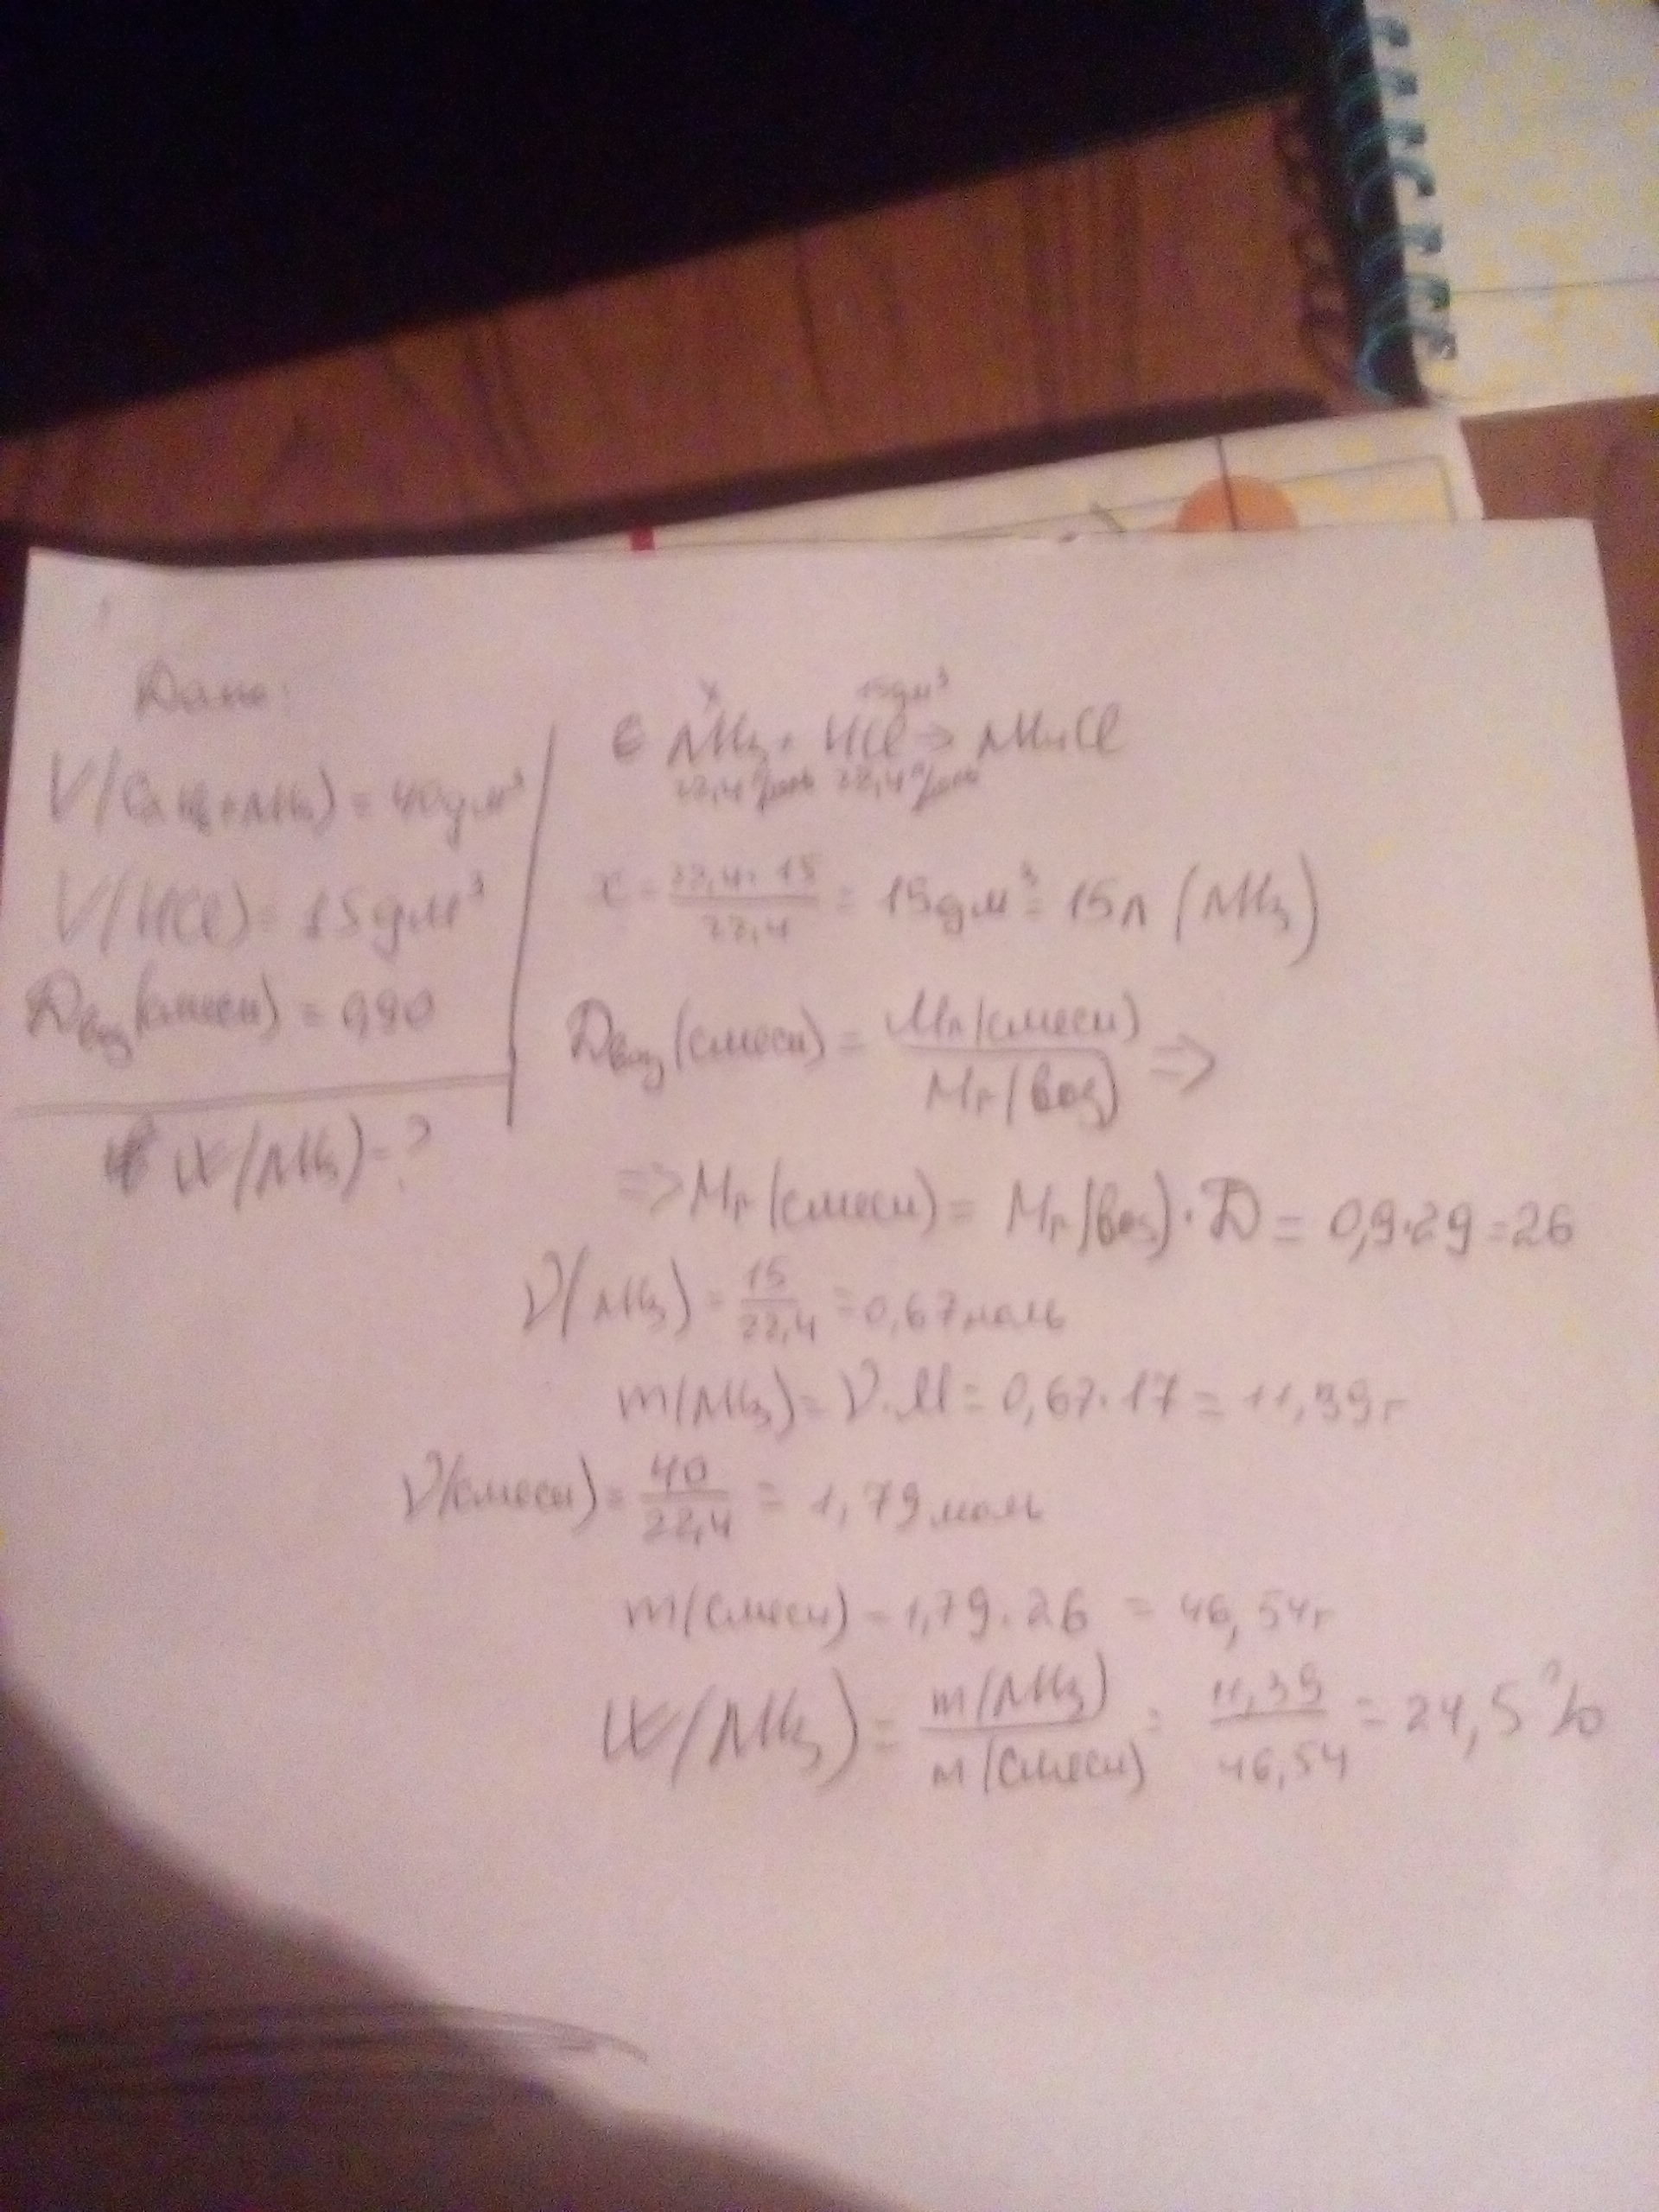 Дано:
V(C₂H₆+NH₃) = 40дм³
V(HCl) = 15дм³
Dвоз(смеси) = 0,90
W(NH₃) = ?
x 15дм³
NH₃ + HCl → NH₄Cl
22,4л/моль 22,4л/моль
x = 22,4 · 15 / 22,4 = 15дм³ = 15л (NH₃)
Dвоз(смеси) = Mr(смеси) / Mr(воз) ⇒
⇒ Mr(смеси) = Mr(воз) · D = 0,9·29 = 26
ν(NH₃) = 15 / 22,4 = 0,67моль
m(NH₃) = ν·M = 0,67·17 = 11,39г
ν(смеси) = 40 / 22,4 = 1,79моль
m(смеси) = 1,79·26 = 46,54г
W(NH₃) = m(NH₃) / m(смеси) = 11,39 / 46,54 = 24,5%